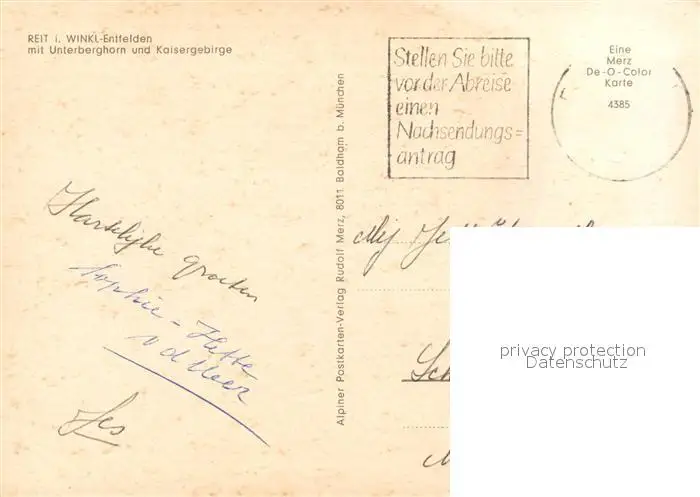 REIT i. WINKL-Entfelden
mit Unterberghorn und Kaisergebirge
Hartelijke groeten
Sophie - Hette
v d Meer
Jes
Alpiner Postkarten-Verlag Rudolf Merz, 8011 Baldham b. München
Stellen Sie bitte
vor der Abreise
einen
Nachsendungs=
antrag
Eine
Merz
De-O-Color
Karte
4385
Mej
privacy protection
Datenschutz